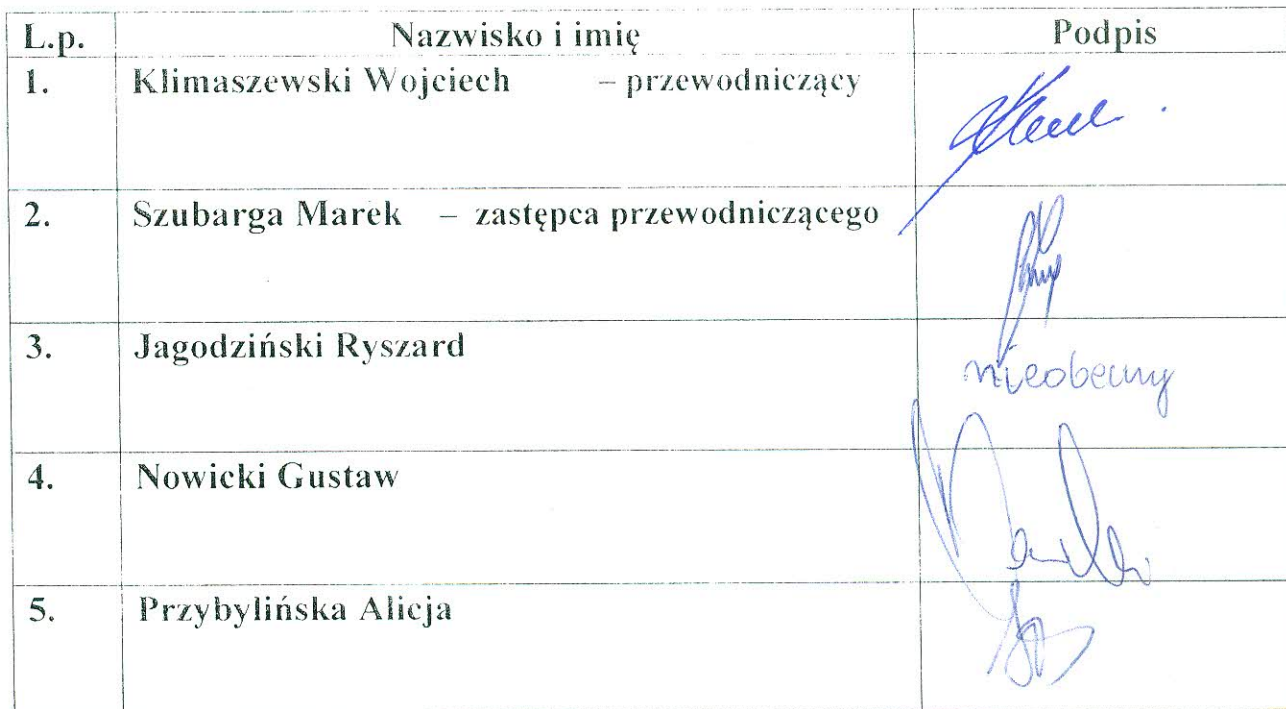 L.p. Nazwisko i imię Podpis
1. Klimaszewski Wojciech – przewodniczący
2. Szubarga Marek – zastępca przewodniczącego
3. Jagodziński Ryszard
nieobecny
4. Nowicki Gustaw
5. Przybylińska Alicja